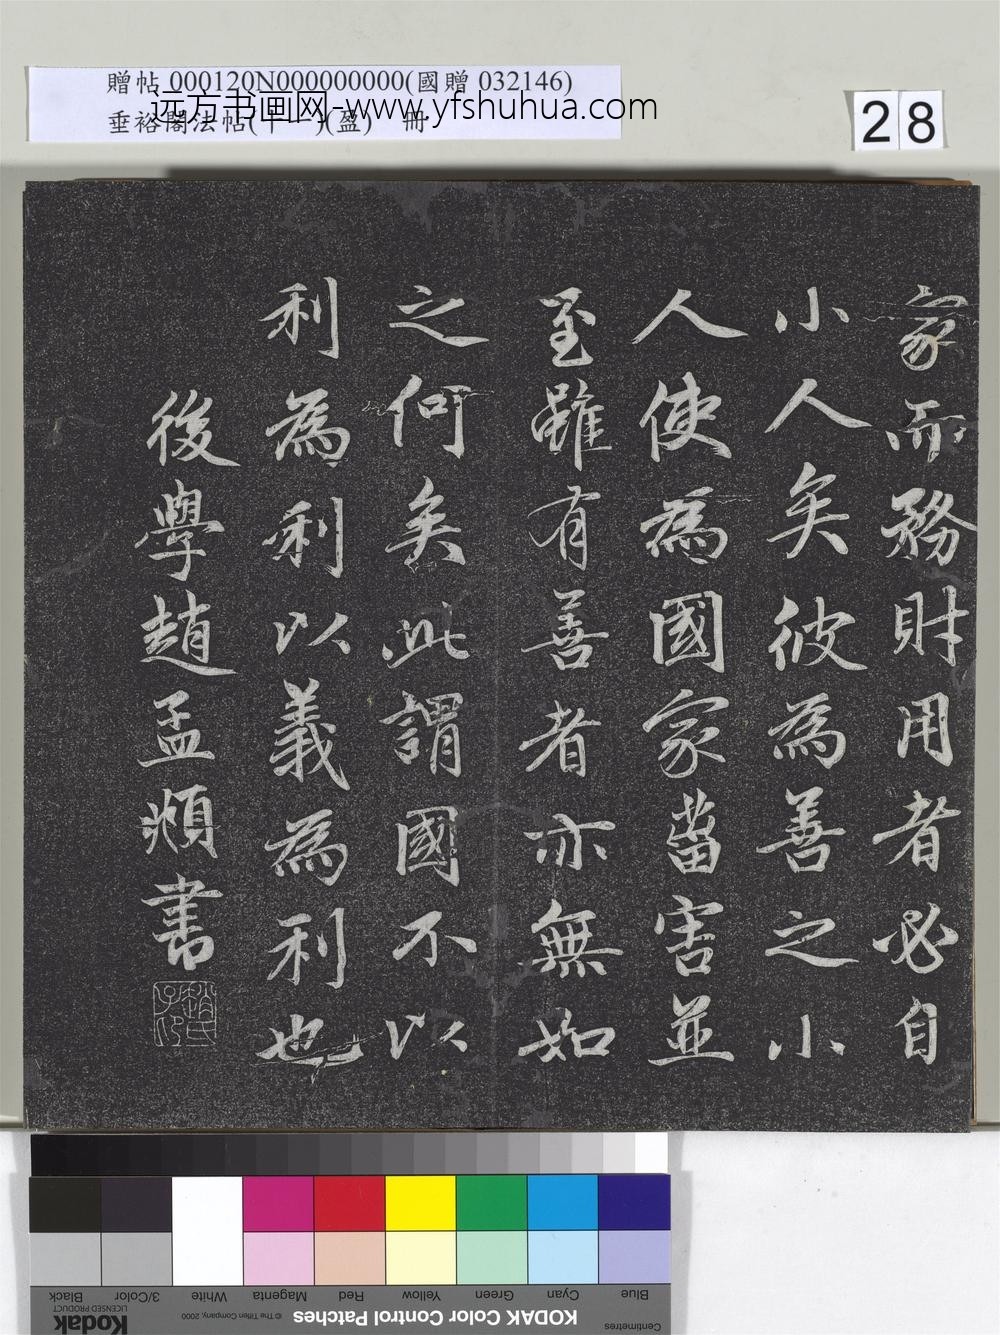 贈帖 000120N000000000(國贈 032146)
远方书画网-www.yfshuhua.com
垂裕閣法帖(十一)(盈) 冊
28
家而務財用者必自
小人矣彼為善之小
人使為國家菑害並
至雖有善者亦無如
之何矣此謂國不以
利為利以義為利也
後學趙孟頫書
趙氏子昂
Black
3/Color
White
Magenta
Red
Yellow
Green
Cyan
Blue
Kodak
LICENSED PRODUCT
© The Tiffen Company, 2000
KODAK Color Control Patches
Centimetres